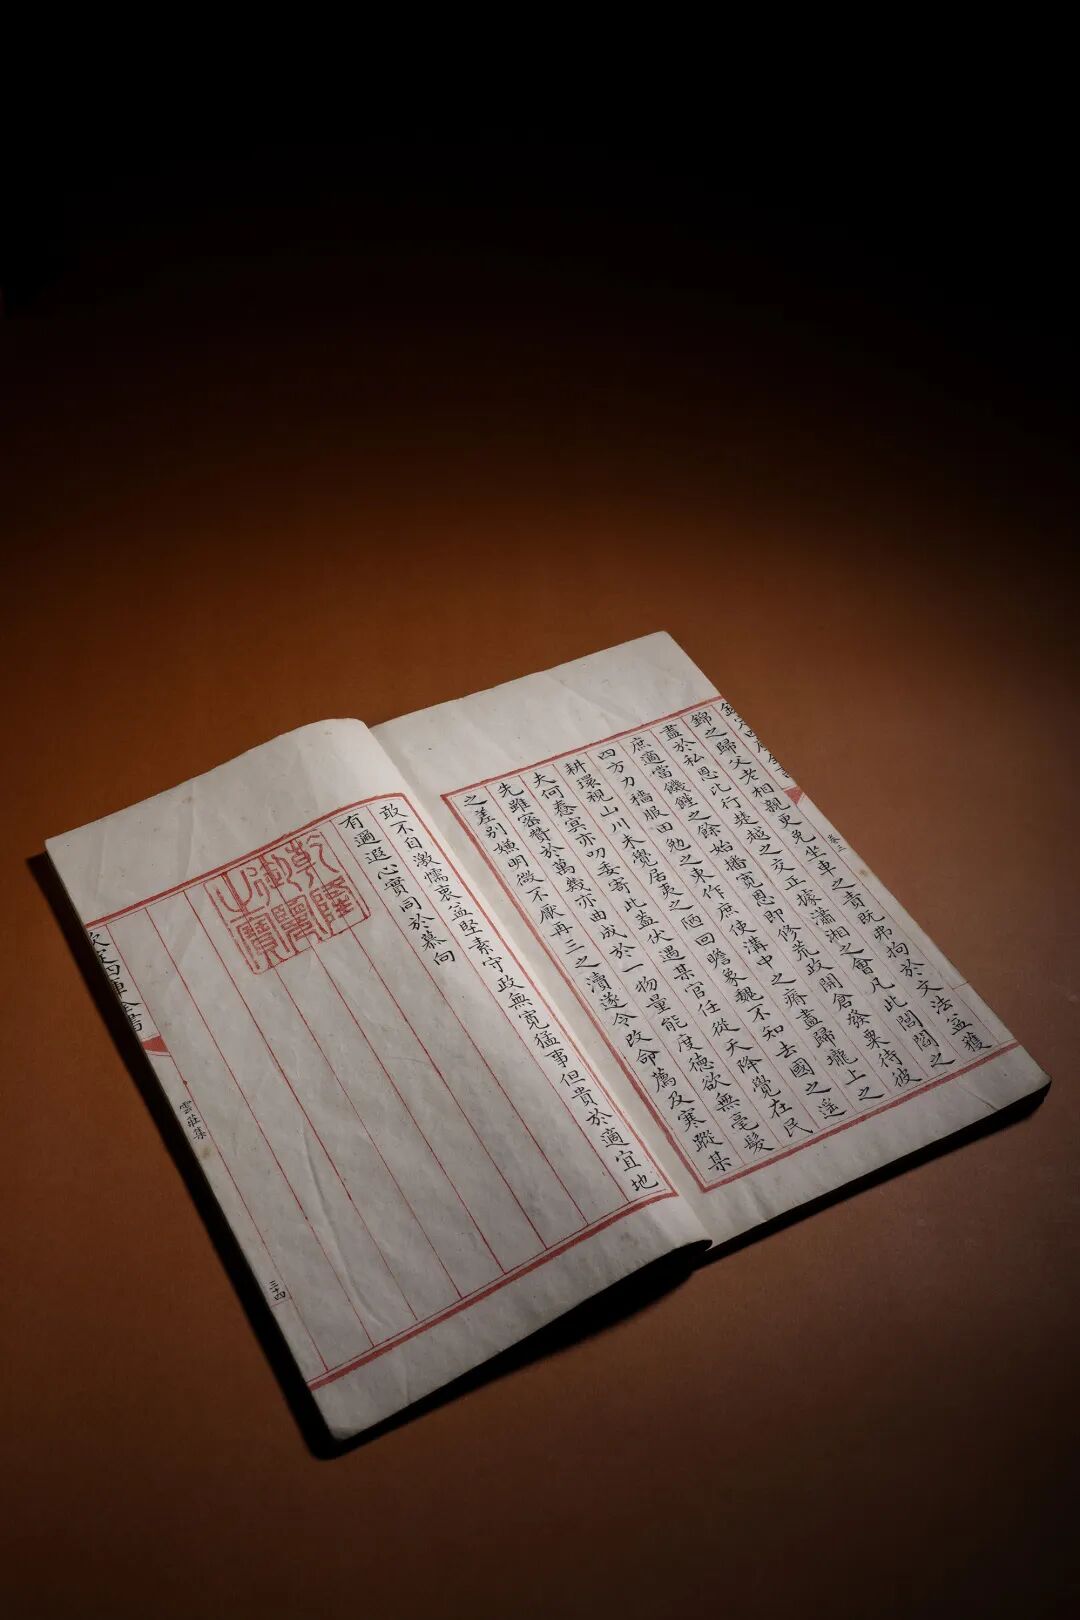 欽定四庫全書
卷二
錦之歸父老相親更免坐車之責既弗拘於文法益獲
盡於私恩比行楚越之交正據瀟湘之會凡此閭閻之
庶適當饑饉之餘始播寬恩即修荒政開倉發粟待彼
四方力穡服田勉之東作庶使溝中之瘠盡歸壠上之
耕環視山川未覺居夷之陋回瞻象魏不知去國之遥
夫何惷冥亦叨委寄此蓋伏遇某官任從天降覺在民
先雖密贊於萬幾亦曲成於一物量能度德欲無毫髮
之差别嫌明微不厭再三之瀆遂令改命薦及寒蹤某
敢不自激懦衷益堅素守政無寬猛事但貴於適宜地
有過遐心實同於慕向
乾隆御覽之寶
欽定四庫全書
雲莊集
三十四